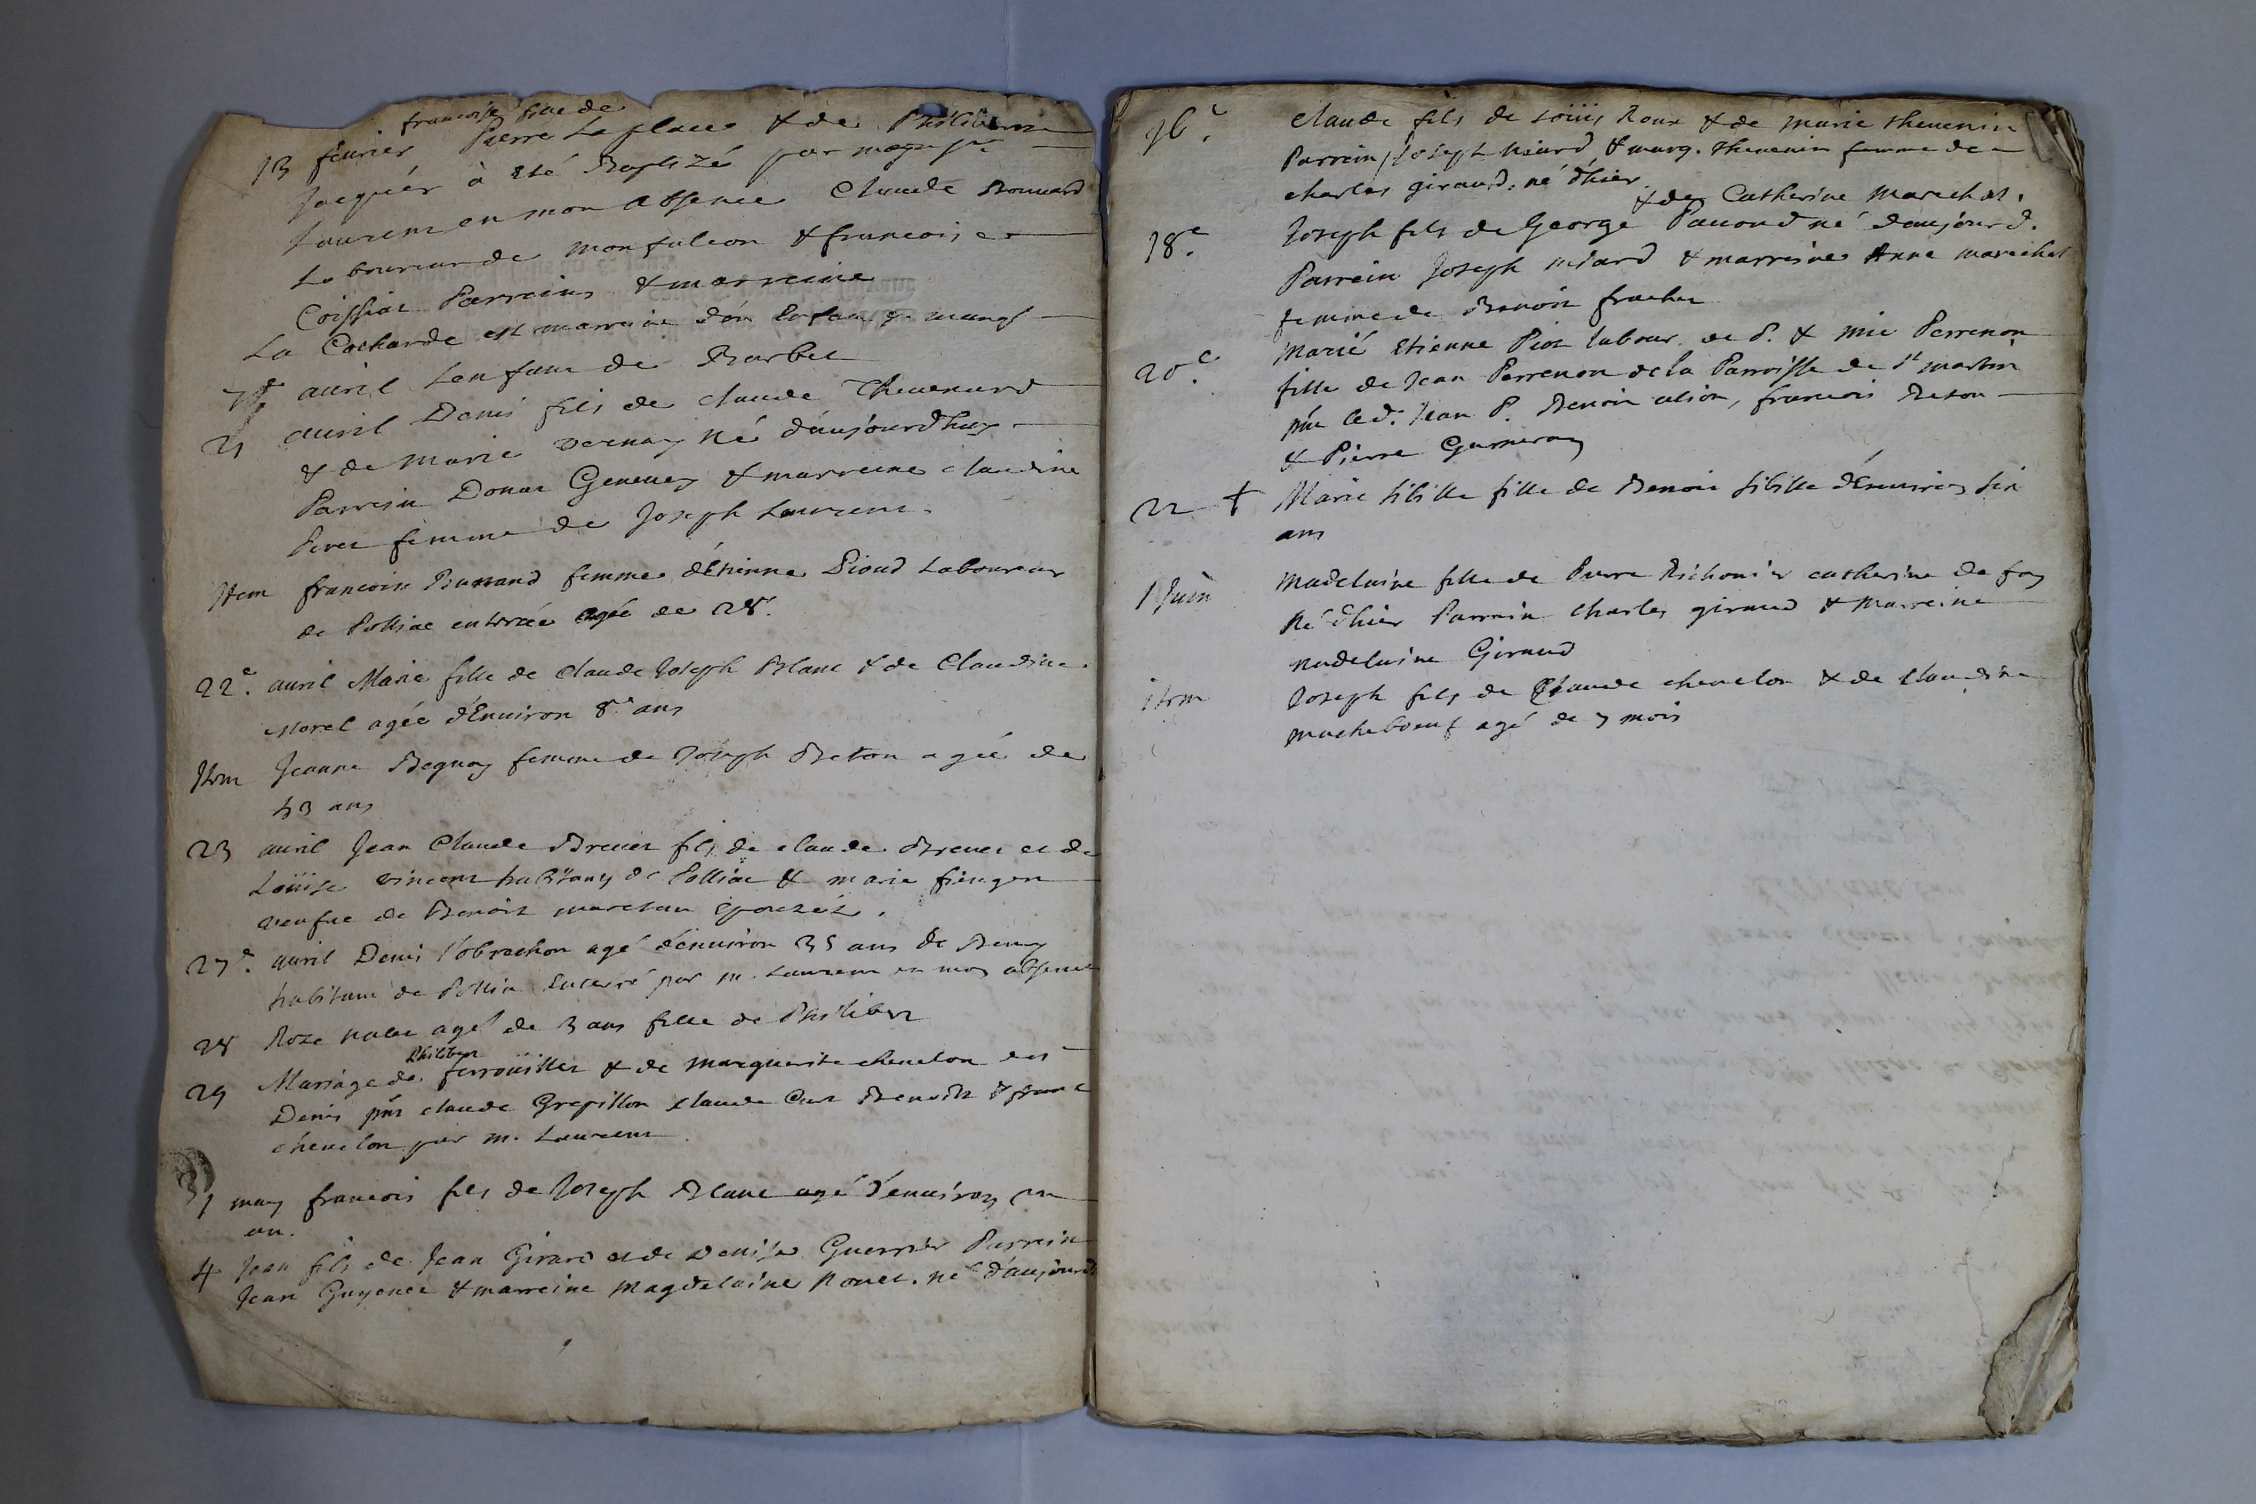 francoise fille de
13 feurier Pierre La place & de Philiberte
Jacquér à été Baptizé par
Laurent en mon absence Claude Bonnard
Laboureur de monfalcon & francoise
Coissiat Parreins & marreine
La Cocharde est marreine d'un enfant
aûril Lenfant de Barbet
21 auril Denis fils de claude Theuenard
& de Marie vernay Né d'aujourdhuy
Parrein Donat Geneuey & marreine claudine
Peret femme de Joseph Laurent.
Item francoise Bussand femme d'Etienne Pioud Laboureur
de Polliac enterrée agée de 28.
22e. auril Marie fille de Claude Joseph Blanc & de Claudine
Morel agée d'Enuiron 8 ans
Item Jeanne Begnoy femme de Joseph Beton agée de
43 ans
23 auril Jean Claude Breuet fils de claude Breuet et de
Loüise vincent habitans de Polliac & marie
veufue de Benoit epouséz.
27e. auril Denis l'obrechon agé d'enuiron 35 ans de
habitant de Pollia Enterré par m. Laurent en mon absence
28 Roze agé de 3 ans fille de Philibert
Philibert
29 Mariage de ferroüillet & de Marguerite cheuelon
Denis pñs claude Grepillon claude Curt Benoist & franc
cheuelon par m. Laurent
1 may francois fils de Joseph Blanc agé d'enuiron un
an.
4 Jean fils de Jean Girard et de Denise Guerrier Parrein
Jean Guyenet & marreine Magdelaine Rouet. né d'aujourd
16e. claude fils de Loüis Roux & de marie theuenin
Parrein Joseph Miard & marg. Theuenin femme de
charles giraud, né d'hier
& de Catherine Marechal.
18e. Joseph fils de George Pauoud né daujourd.
Parrein Joseph miard & marreine Anne marechal
femme de Benoit frachet
20e. Marié Etienne Piot labour. de P. & mie Perrenon
fille de Jean Perrenon de la Parroisse de st martin
pñs led. Jean P. Benoit alion, francois Beton
& Pierre
22 + Marie sibille fille de Benoit sibille d'Enuiron six
ans
1 Juin Madelaine fille de Pierre Bichonier catherine de fay
Né d'hier Parrein charles giraud & Marreine
Madelaine Giraud
item Joseph fils de Claude cheuelon & de claudine
macheboeuf agé de 7 mois